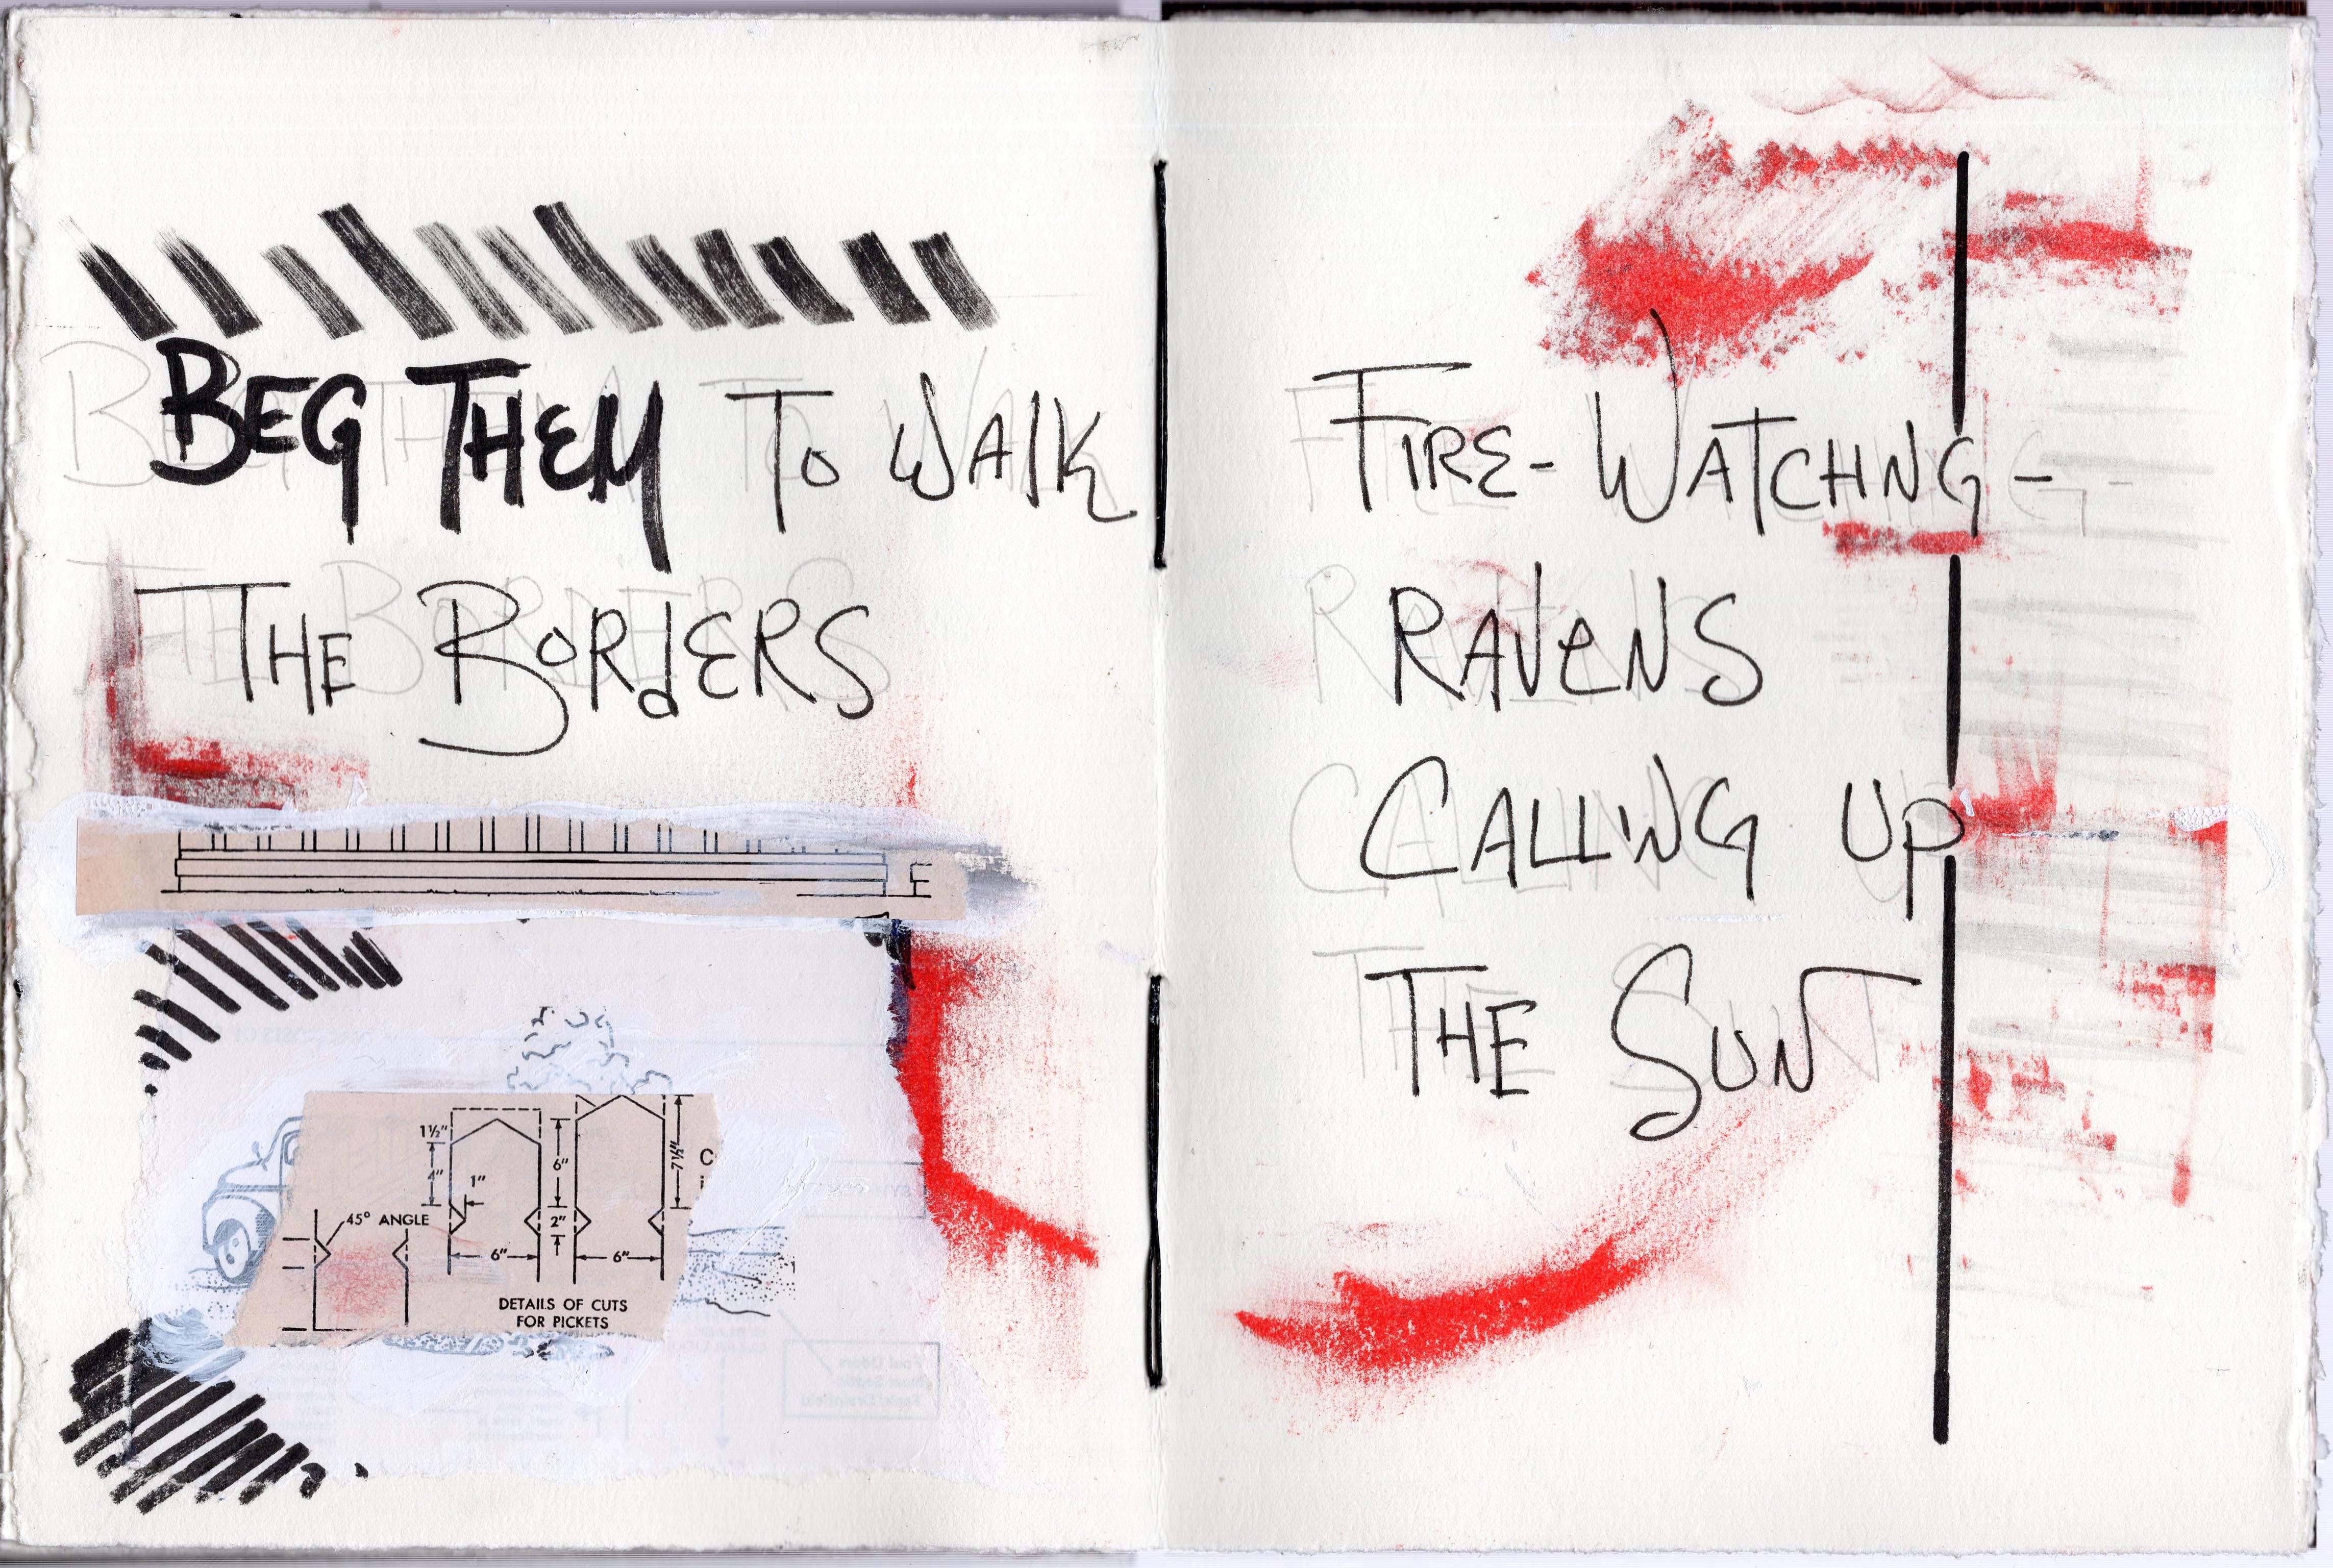 BEG THEM To WAlK
THE BORdERS
1½"
4"
1"
6"
7½"
C
45° ANGLE
2"
6"
6"
DETAILS OF CUTS
FOR PICKETS
FIRE-WATCHNG-
RAVeNS
CALLING UP
THE SUN